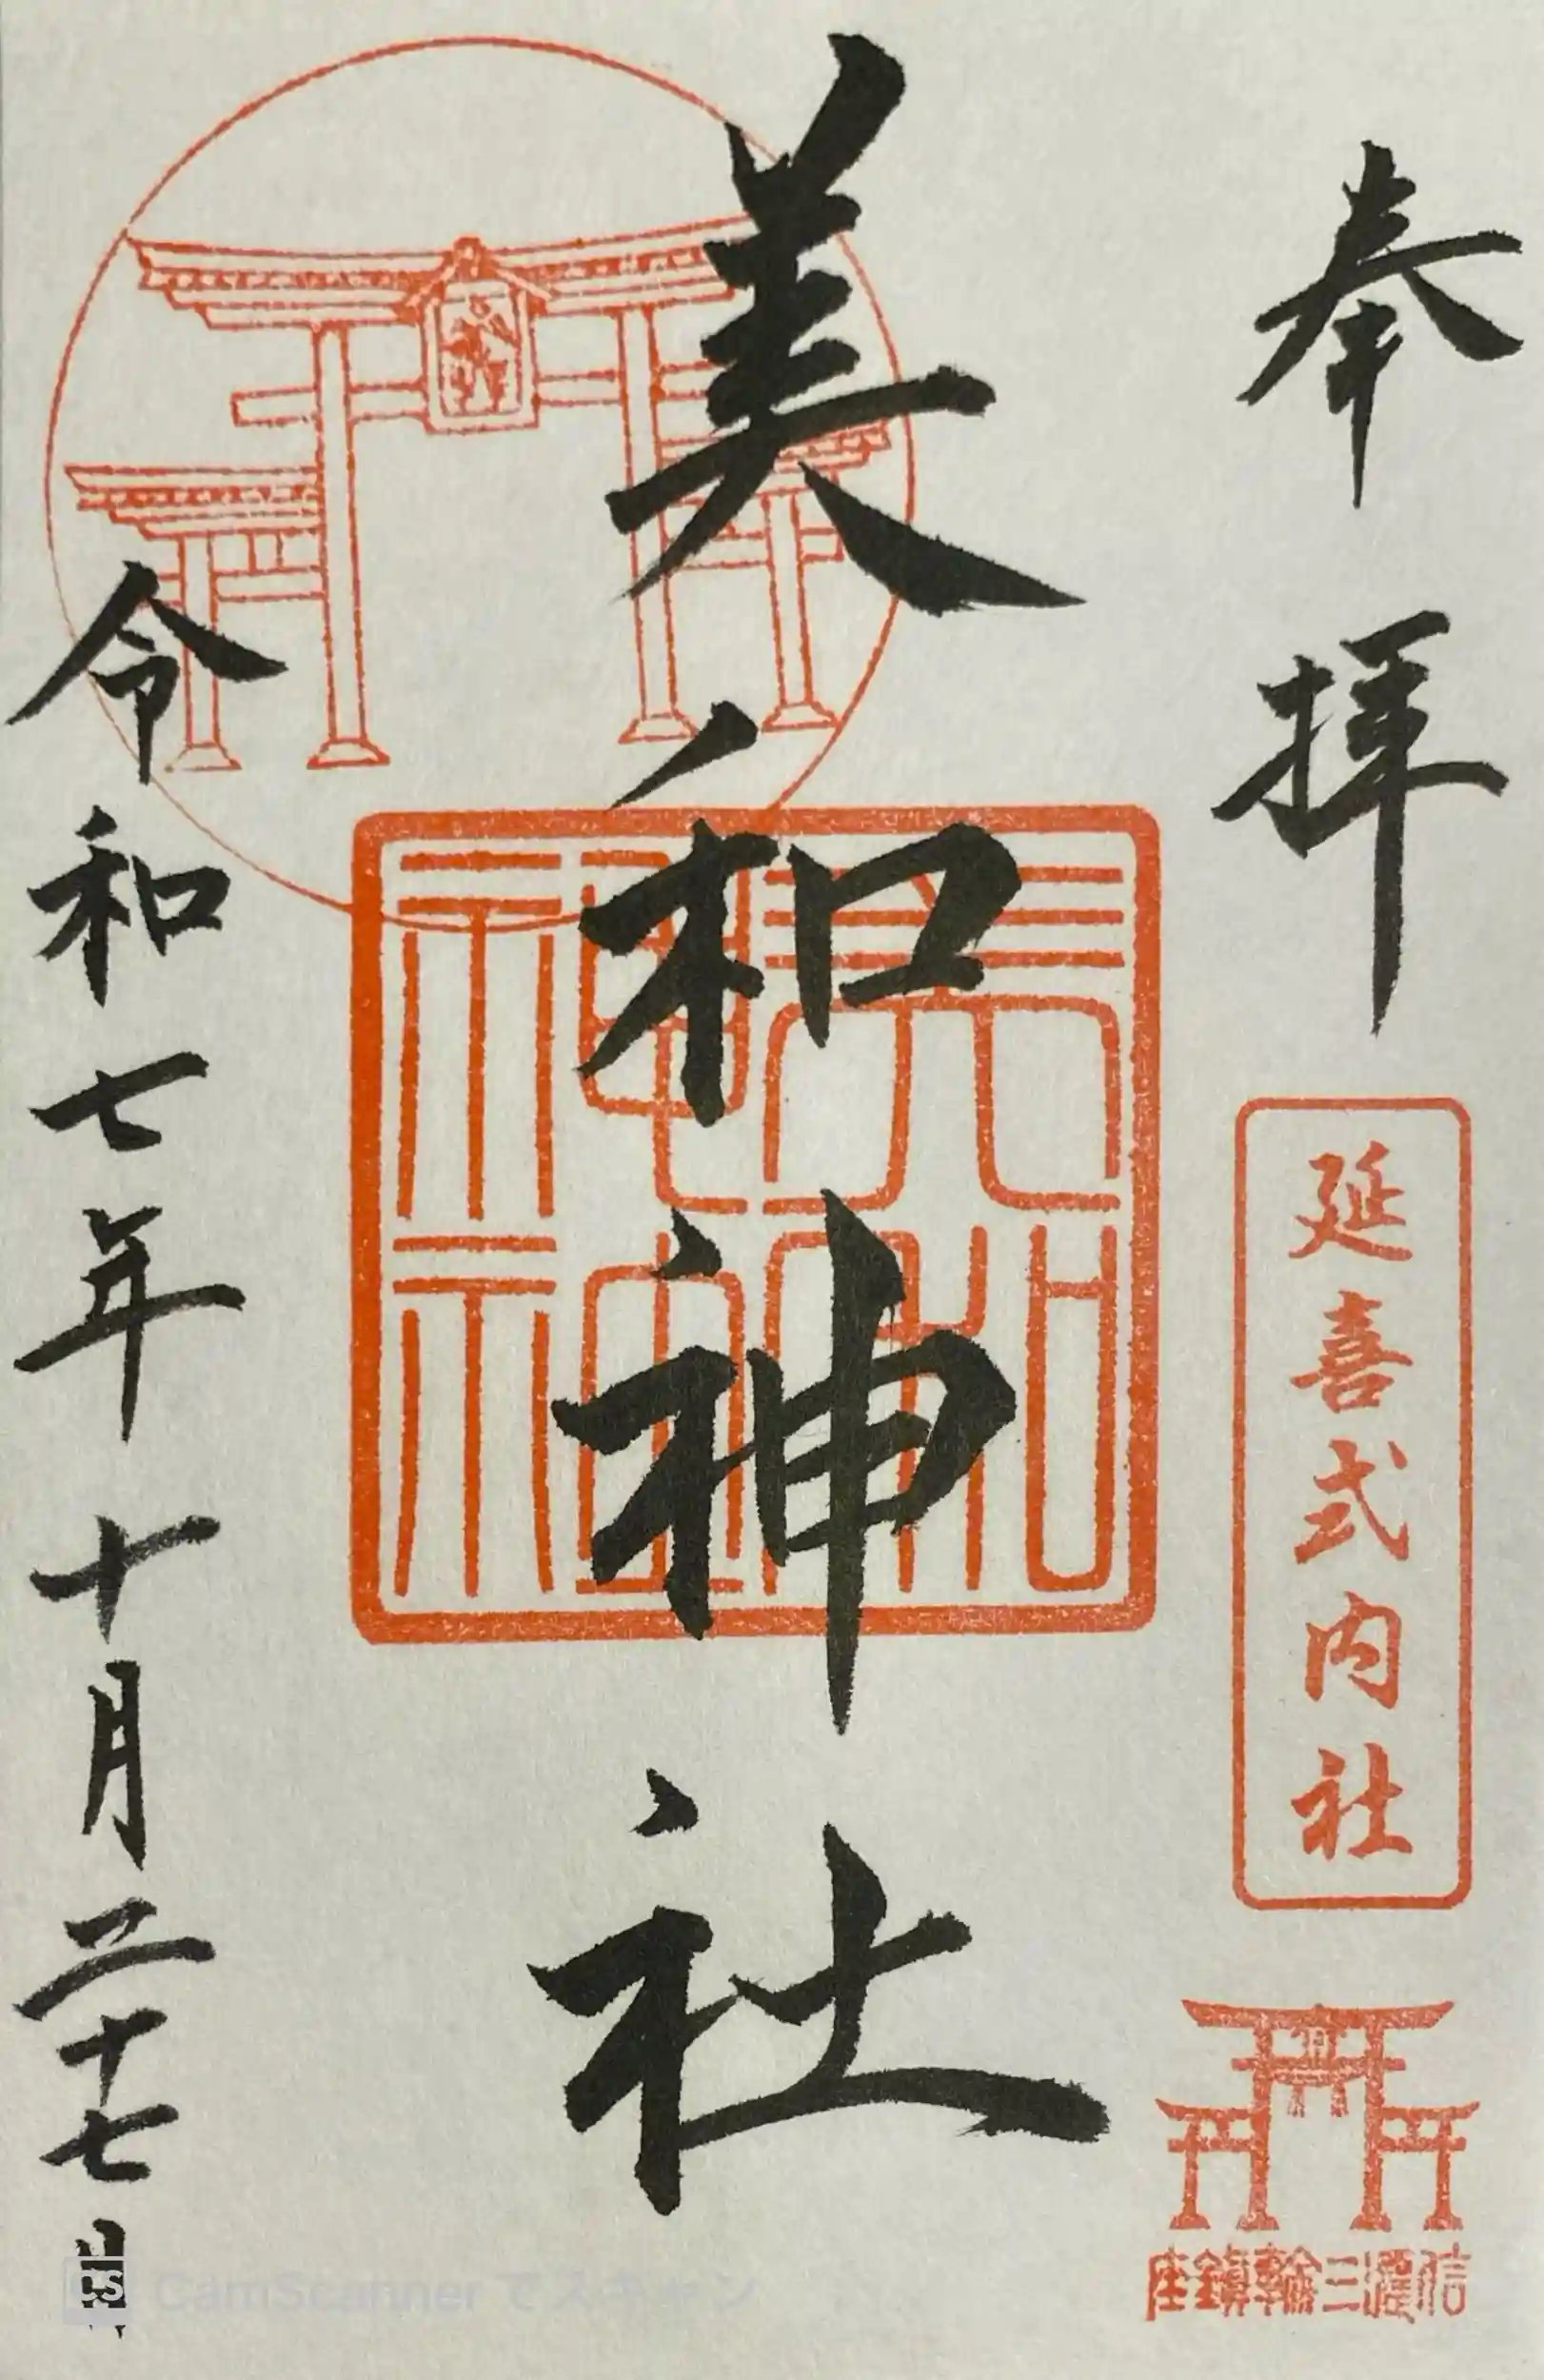 奉拝
延喜式内社
信濃三輪鎮座
美和神社
美和神社
令和七年十月二十七日
CS CamScanner でスキャン